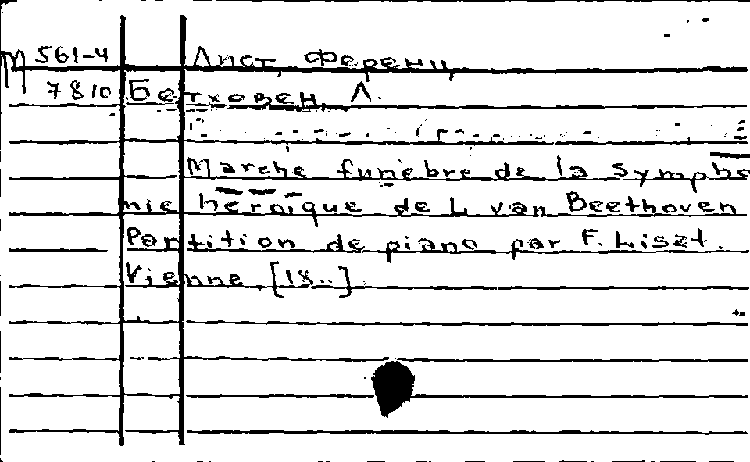 М 561-4 Лист, Ференц
7810 Бетховен, Л.
Marche funèbre de la Sympho
nie héroïque de L. van Beethoven
Partition de piano par F. Liszt.
Vienne, [18..]